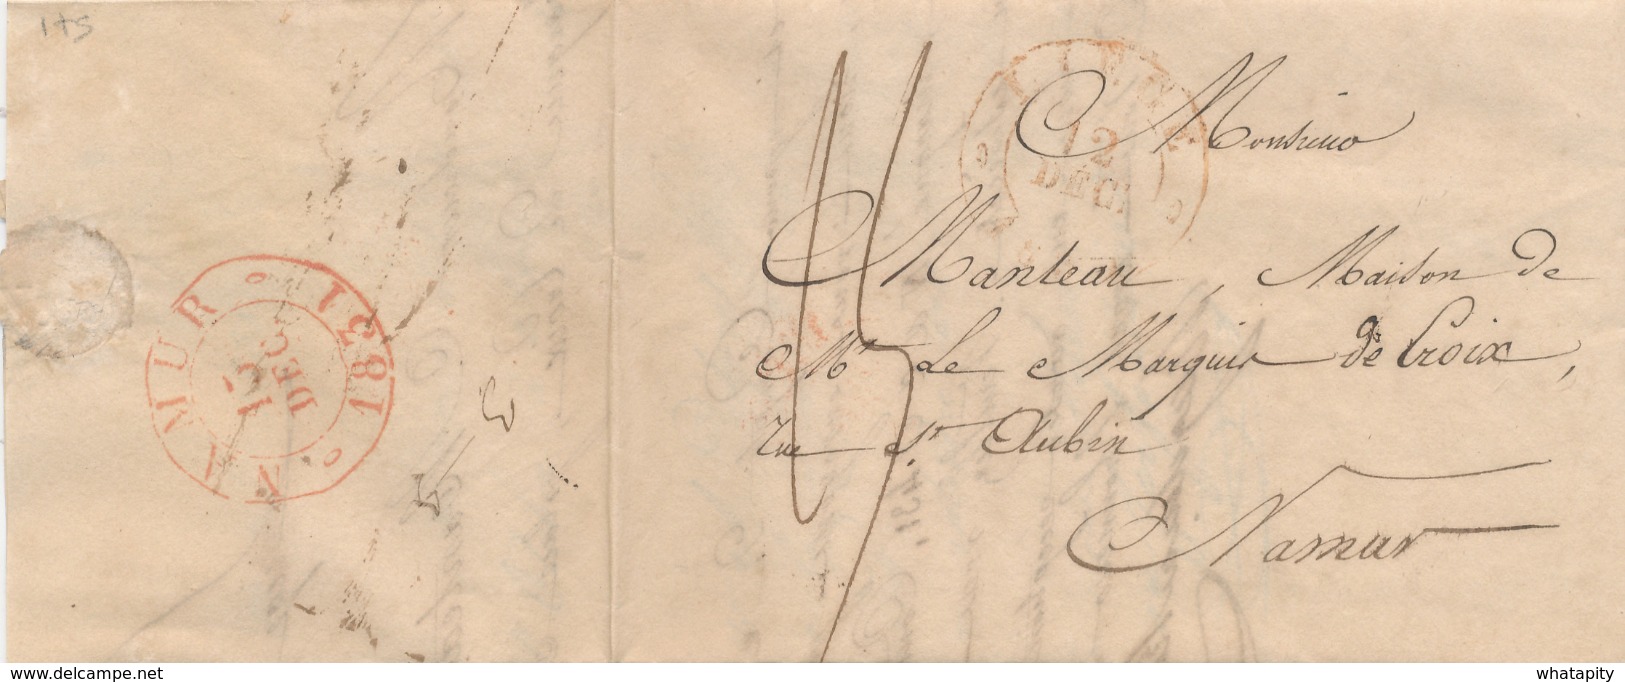 175
LIERRE
12
DEC
Monsieur
Manteau, Maison de
Mr. Le Marquis de Croix,
rue St. Aubin
Namur
NAMUR 1831
13
DEC
delcampe.net
whatapity